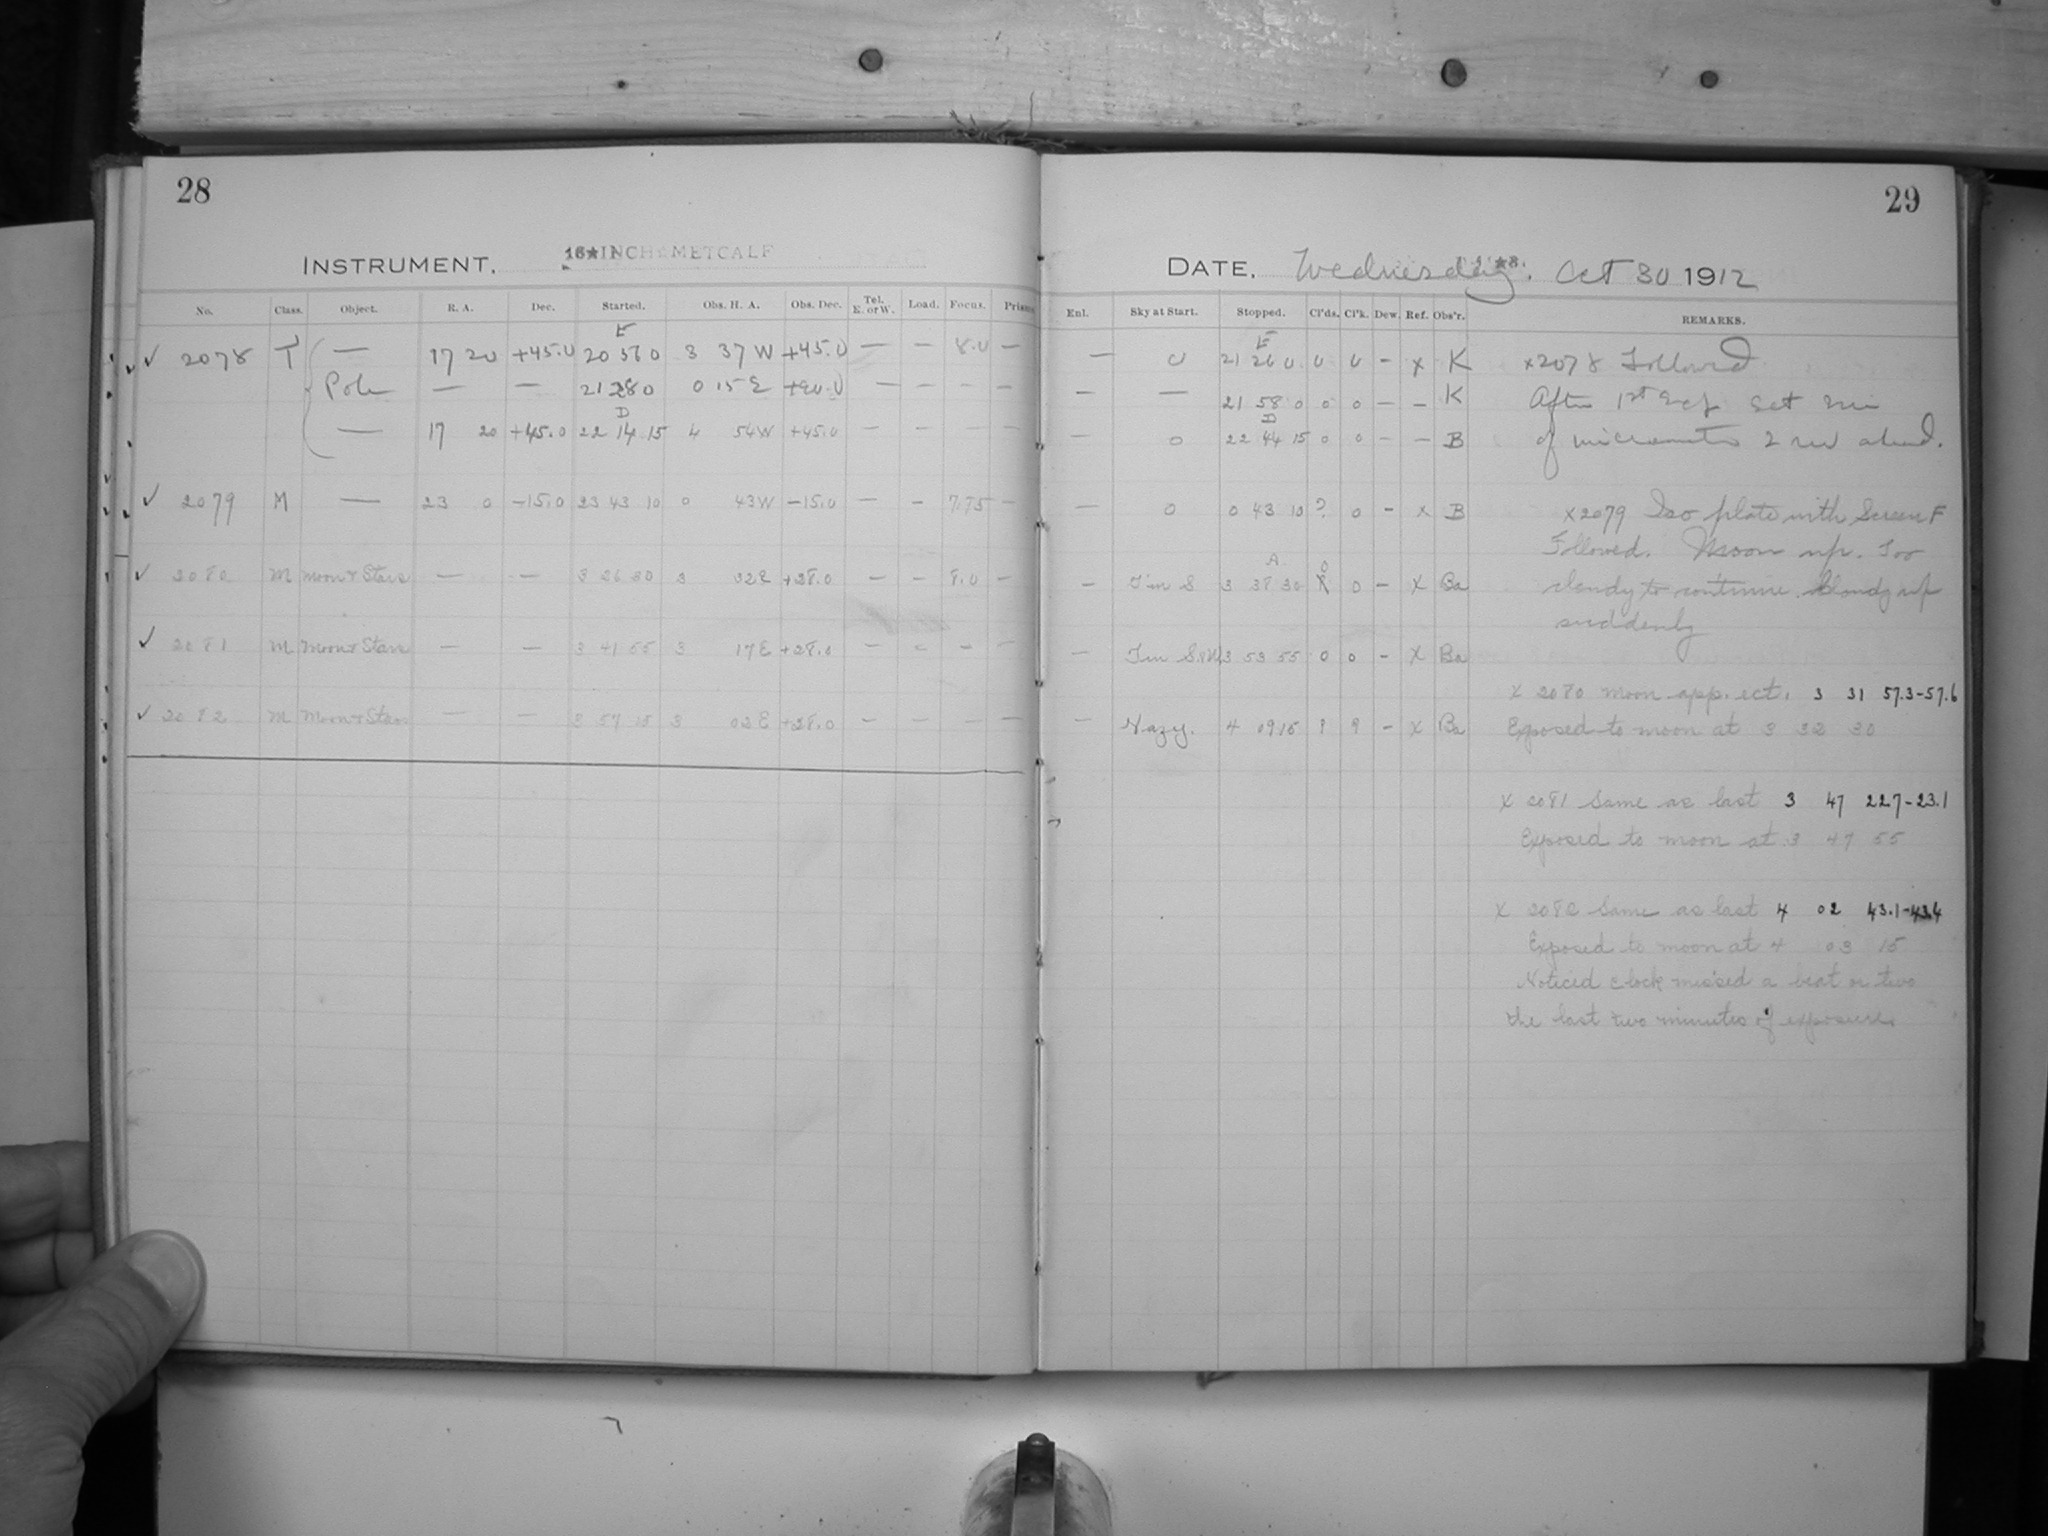 28
INSTRUMENT. 16★INCH METCALF
No. Class. Object. R. A. Dec. Started. Obs. H. A. Obs. Dec. Tel. E. or W. Load. Focus. Prisms
E
✓ 2078 T — 17 20 +45.0 20 56 0 3 37 W +45.0 — — 8.0 —
Pole — — 21 28 0 0 15 E +90.0 — — — —
D
— 17 20 +45.0 22 14 15 4 54W +45.0 — — — —
✓ 2079 M — 23 0 -15.0 23 43 10 0 43W -15.0 — — 7.75 —
✓ 2080 M Moon & Stars — — 3 26 30 3 32E +28.0 — — 8.0 —
✓ 2081 M Moon & Stars — — 3 41 55 3 17E +28.0 — — — —
✓ 2082 M Moon & Stars — — 3 57 15 3 02E +28.0 — — — —
29
DATE. Wednesday. Oct 30 1912
Enl. Sky at Start. Stopped. Cl'ds. Cl'k. Dew. Ref. Obs'r. REMARKS.
E
— 0 21 26 0 0 0 — x K x2078 Followed
— — 21 58 0 0 0 — — K After 1st Exp set
D
— 0 22 44 15 0 0 — — B of micrometer 2 rev ahead.
— 0 0 43 10 ? 0 — x B x2079 Iso plate with Screen F
Followed. Moon up. Too
A
— 3 38 30 0 — X Ba cloudy to continue. Cloudy up
suddenly
— 3 53 55 0 0 — X Ba
x 2080 moon app. ect. 3 31 57.3-57.6
— Hazy. 4 09 15 ? ? — X Ba Exposed to moon at 3 32 30
x 2081 Same as last 3 47 22.7-23.1
Exposed to moon at 3 47 55
X 2082 Same as last 4 02 43.1-43.4
Exposed to moon at 4 03 15
Noticed clock missed a beat or two
the last two minutes of exposure.